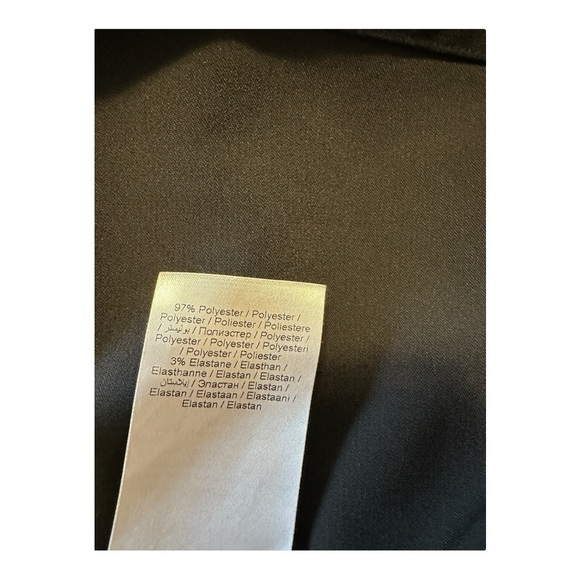 97% Polyester / Polyester /
Polyester / Poliester / Poliestere
/ بوليستر / Полиэстер / Polyester
Polyester / Polyester / Polyesteri
/ Polyester / Poliester
3% Elastane / Elasthan /
Elasthanne / Elastan / Elastan /
إيلاستان / Эластан / Elastan /
Elastan / Elastaan / Elastaani /
Elastan / Elastan